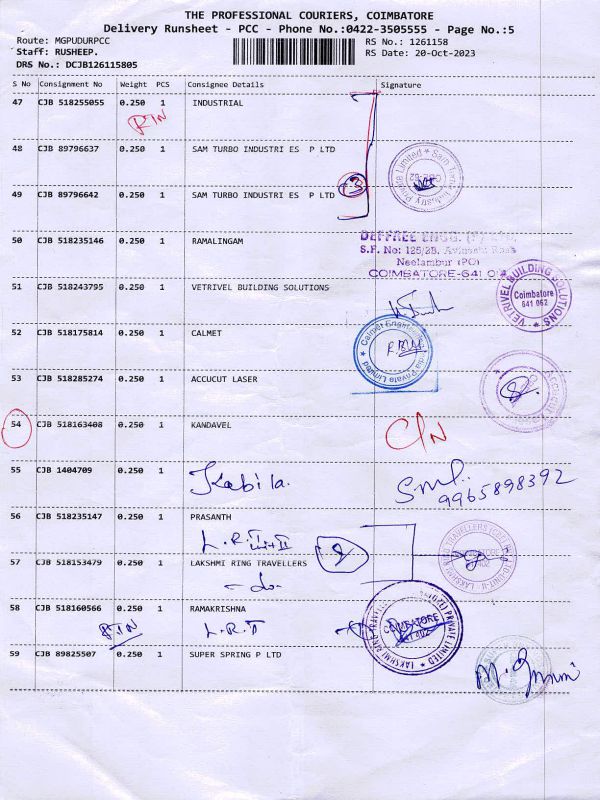 THE PROFESSIONAL COURIERS, COIMBATORE
Delivery Runsheet - PCC - Phone No.:0422-3505555 - Page No.:5
Route: MGPUDURPCC
RS No.: 1261158
Staff: RUSHEEP.
RS Date: 20-Oct-2023
DRS No.: DCJB126115805
S No Consignment No Weight PCS Consignee Details Signature
47 CJB 518255055 0.250 1 INDUSTRIAL
RTN
48 CJB 89796637 0.250 1 SAM TURBO INDUSTRI ES P LTD
49 CJB 89796642 0.250 1 SAM TURBO INDUSTRI ES P LTD
3
50 CJB 518235146 0.250 1 RAMALINGAM
S.F. No: 125/2B, Avinashi Road
Neelambur (PO)
COIMBATORE-641 0
51 CJB 518243795 0.250 1 VETRIVEL BUILDING SOLUTIONS
VETRIVEL BUILDING SOLUTIONS
Coimbatore
641 062
52 CJB 518175814 0.250 1 CALMET
53 CJB 518285274 0.250 1 ACCUCUT LASER
54 CJB 518163408 0.250 1 KANDAVEL
C/N
55 CJB 1404709 0.250 1 Kabila.
9965898392
56 CJB 518235147 0.250 1 PRASANTH
L.R.T
Unit II
57 CJB 518153479 0.250 1 LAKSHMI RING TRAVELLERS
-do-
58 CJB 518160566 0.250 1 RAMAKRISHNA
RTN
L.R.T
COIMBATORE
59 CJB 89825507 0.250 1 SUPER SPRING P LTD